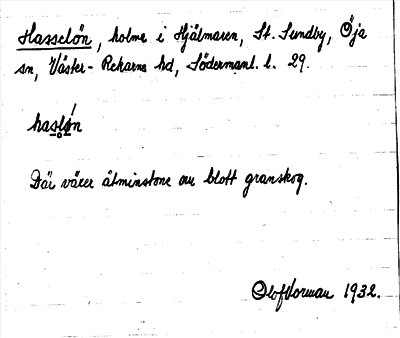 Hasselön, holme i Hjälmaren, St. Sundby, Öja
sn, Väster-Rekarne hd, Södermanl. l. 29.
haslö́n
Där växer åtminstone nu blott granskog.
Olof Norman 1932.